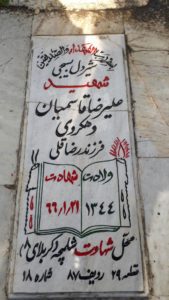 شیردل بسیجی
شهید
علیرضا قاسمیان
وهکروی
فرزند رضاقلی
ولادت شهادت
۱۳۴۴ ۶۶/۱/۲۱
محل شهادت شلمچه کربلای ۸
قطعه ۲۹ ردیف ۸۷ شماره ۱۸